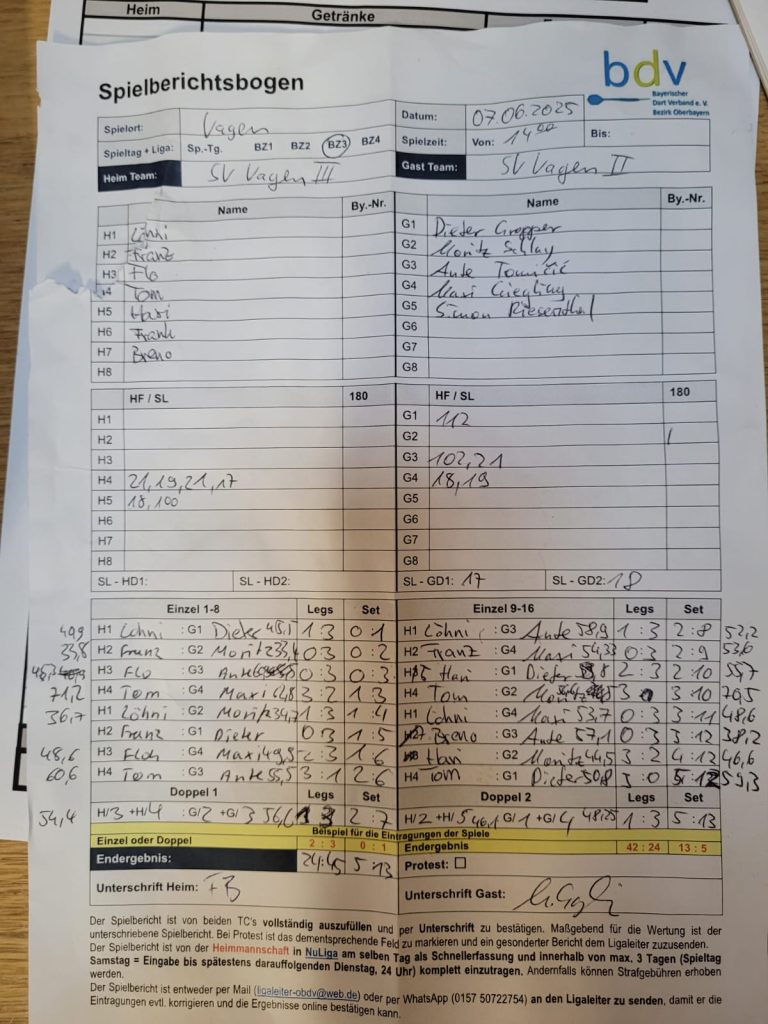 Heim Getränke
Spielberichtsbogen
bdv
Bayerischer
Dart Verband e. V.
Bezirk Oberbayern
Spielort: Vagen Datum: 07.06.2025
Spieltag + Liga: Sp.-Tg. BZ1 BZ2 BZ3 BZ4 Spielzeit: Von: 14 00 Bis:
Heim Team: SV Vagen III Gast Team: SV Vagen II
Name By.-Nr. Name By.-Nr.
H1 Löhni G1 Dieter Gropper
H2 Franz G2 Moritz Schlay
H3 Flo G3 Ante Tomičić
H4 Tom G4 Maxi
H5 Hari G5 Simon Riesenthal
H6 Frank G6
H7 Breno G7
H8 G8
HF / SL 180 HF / SL 180
H1 G1 112
H2 G2 /
H3 G3 102,21
H4 21,19,21,17 G4 18,19
H5 18,100 G5
H6 G6
H7 G7
H8 G8
SL - HD1: SL - HD2: SL - GD1: 17 SL - GD2: 18
Einzel 1-8 Legs Set Einzel 9-16 Legs Set
H1 Löhni : G1 Dieter 1:3 0:1 H1 Löhni : G3 Ante 58,9 1:3 2:8 52,2
33,8 H2 Franz : G2 Moritz 0:3 0:2 H2 Franz : G4 Maxi 54,33 0:3 2:9 53,6
H3 Flo : G3 Ante 0:3 0:3 Hari : G1 Dieter 2:3 2:10
71,2 H4 Tom : G4 Maxi 3:2 1:3 H4 Tom : G2 3 3:10 70,5
36,7 H1 Löhni : G2 Moritz 34,7 1:3 1:4 H1 Löhni : G4 Maxi 53,7 0:3 3:11 48,6
H2 Franz : G1 Dieter 0:3 1:5 Breno : G3 Ante 57,1 0:3 3:12 38,2
48,6 H3 : G4 Maxi 49,5 :3 1:6 Hari : G2 Moritz 44,5 3:2 4:12 46,6
60,6 H4 Tom : G3 Ante 55,5 3:1 2:6 H4 Tom : G1 Dieter 50,8 3:0 5:12 59,3
Doppel 1 Legs Set Doppel 2 Legs Set
54,4 H/3 +H/4 : G/2 +G/3 56,6 1:3 2:7 H/2 +H/5 46,1 G/1 +G/4 48,25 1:3 5:13
Beispiel für die Eintragungen der Spiele
Einzel oder Doppel 2 : 3 0 : 1 Endergebnis 42 : 24 13 : 5
Endergebnis: 24:45 5:13 Protest:
Unterschrift Heim: FB Unterschrift Gast:
Der Spielbericht ist von beiden TC's vollständig auszufüllen und per Unterschrift zu bestätigen. Maßgebend für die Wertung ist der
unterschriebene Spielbericht. Bei Protest ist das dementsprechende Feld zu markieren und ein gesonderter Bericht dem Ligaleiter zuzusenden.
Der Spielbericht ist von der Heimmannschaft in NuLiga am selben Tag als Schnellerfassung und innerhalb von max. 3 Tagen (Spieltag
Samstag = Eingabe bis spätestens darauffolgenden Dienstag, 24 Uhr) komplett einzutragen. Andernfalls können Strafgebühren erhoben
werden.
Der Spielbericht ist entweder per Mail (ligaleiter-obdv@web.de) oder per WhatsApp (0157 50722754) an den Ligaleiter zu senden, damit er die
Eintragungen evtl. korrigieren und die Ergebnisse online bestätigen kann.